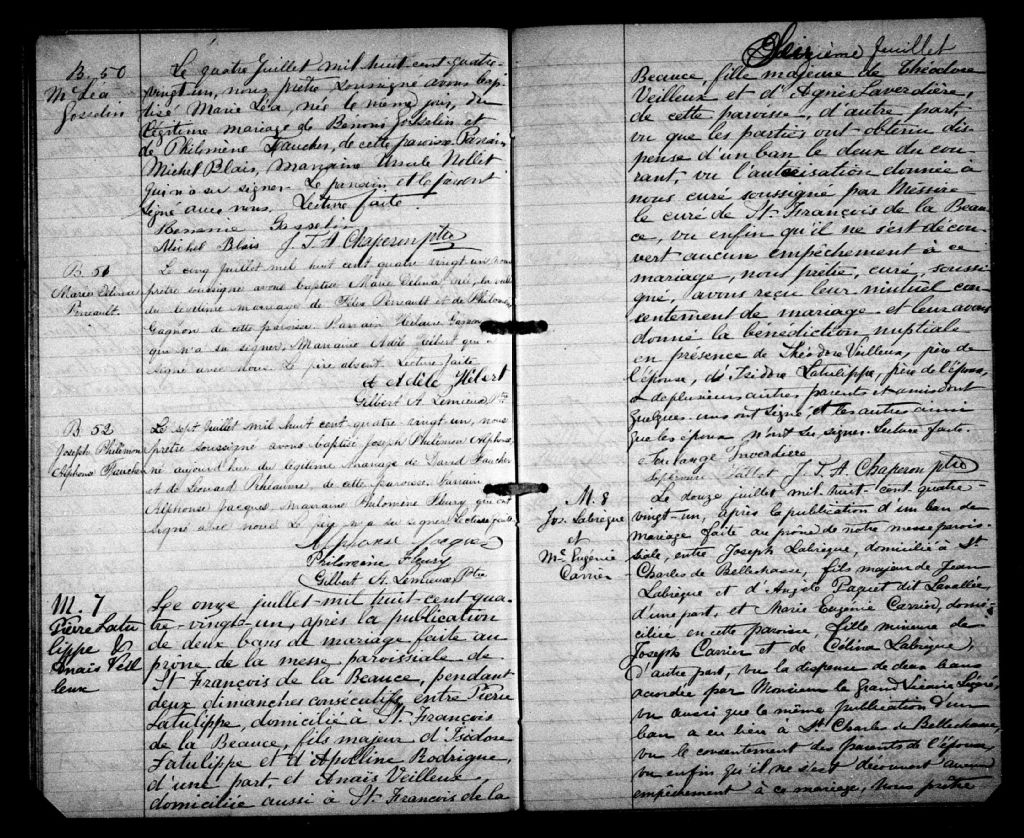 B. 50
Mie Léa
Gosselin
Le quatre Juillet mil huit cent quatre-
vingt un, nous prêtre soussigné avons bap-
tisé Marie Léa, née le même jour, du
légitime mariage de Bénoni Gosselin et
de Philomène Faucher, de cette paroisse. Parrain
Michel Blais, Marraine Ursule Nollet
qui n'a su signer. Le parrain et le père ont
signé avec nous. Lecture faite.
Gosselin
Michel Blais J. T. A. Chaperon ptre
B. 51
Marie Délina
Perreault.
Le cinq Juillet mil huit cent quatre vingt un nous
prêtre soussigné avons baptisé Marie Délina née la veille
du légitime mariage de Félix Perreault et de Philomène
Gagnon de cette paroisse. Parrain Hilaire Gagnon
qui n'a su signer, Marraine Adèle Hébert qui a
signé avec nous. Le père absent. Lecture faite
Adèle Hébert
Gilbert A. Lemieux Ptre
B. 52
Joseph Philémon
Alphonse Faucher
Le sept Juillet mil huit cent quatre vingt un, nous
prêtre soussigné avons baptisé Joseph Philémon Alphonse
né aujourd'hui du légitime mariage de David Faucher
et de Léonard Rhéaume, de cette paroisse. Parrain
Alphonse Jacques, Marraine Philomène Fleury qui ont
signé avec nous. Le père n'a su signer. Lecture faite
Alphonse Jacques
Philomène Fleury
Gilbert A. Lemieux Ptre
M. 7
Pierre Latu
lippe &
Anaïs Veil
leux
Le onze juillet mil huit-cent-qua-
tre-vingt-un, après la publication
de deux bans de mariage faite au
prône de la messe paroissiale de
St François de la Beauce, pendant
deux dimanches consécutifs, entre Pierre
Latulippe, domicilié à St. François
de la Beauce, fils majeur d'Isidore
Latulippe et d'Apolline Rodrigue,
d'une part, et Anaïs Veilleux,
domiciliée aussi à St. François de la
Seizième feuillet
Beauce, fille majeure de Théodore
Veilleux et d'Agnès Laverdière,
de cette paroisse, d'autre part,
vu que les parties ont obtenu dis-
pense d'un ban le deux du cou-
rant, vu l'autorisation donnée à
nous curé soussigné par Messire
le curé de St. François de la Beau-
ce, vu enfin qu'il ne s'est décou-
vert aucun empêchement à ce
mariage, nous prêtre, curé, soussi-
gné, avons reçu leur mutuel con-
sentement de mariage et leur avons
donné la bénédiction nuptiale
en présence de Théodore Veilleux, père de
l'épouse, d'Isidore Latulippe, père de l'époux,
& de plusieurs autres parents et amis dont
quelques-uns ont signé, et les autres ainsi
que les époux n'ont su signer. Lecture faite.
J. T. A. Chaperon ptre
M. 8
Jos. Labrègue
et
Mie Eugénie
Carrier
Le douze juillet mil-huit-cent-quatre-
vingt-un, après la publication d'un ban de
mariage faite au prône de notre messe parois-
siale, entre Joseph Labrègue, domicilié à St
Charles de Bellechasse, fils majeur de Jean
Labrègue et d'Angèle Paquet dit Lavallée
d'une part, et Marie Eugénie Carrier, domi-
ciliée en cette paroisse, fille mineure de
Joseph Carrier et de Célina Labrègue,
d'autre part, vu la dispense de deux bans
accordée par Monsieur le Grand Vicaire Légaré,
vu aussi que la même publication d'un
ban a eu lieu à St Charles de Bellechasse,
vu le consentement des parents de l'épouse,
vu enfin qu'il ne s'est découvert aucun
empêchement à ce mariage, Nous prêtre